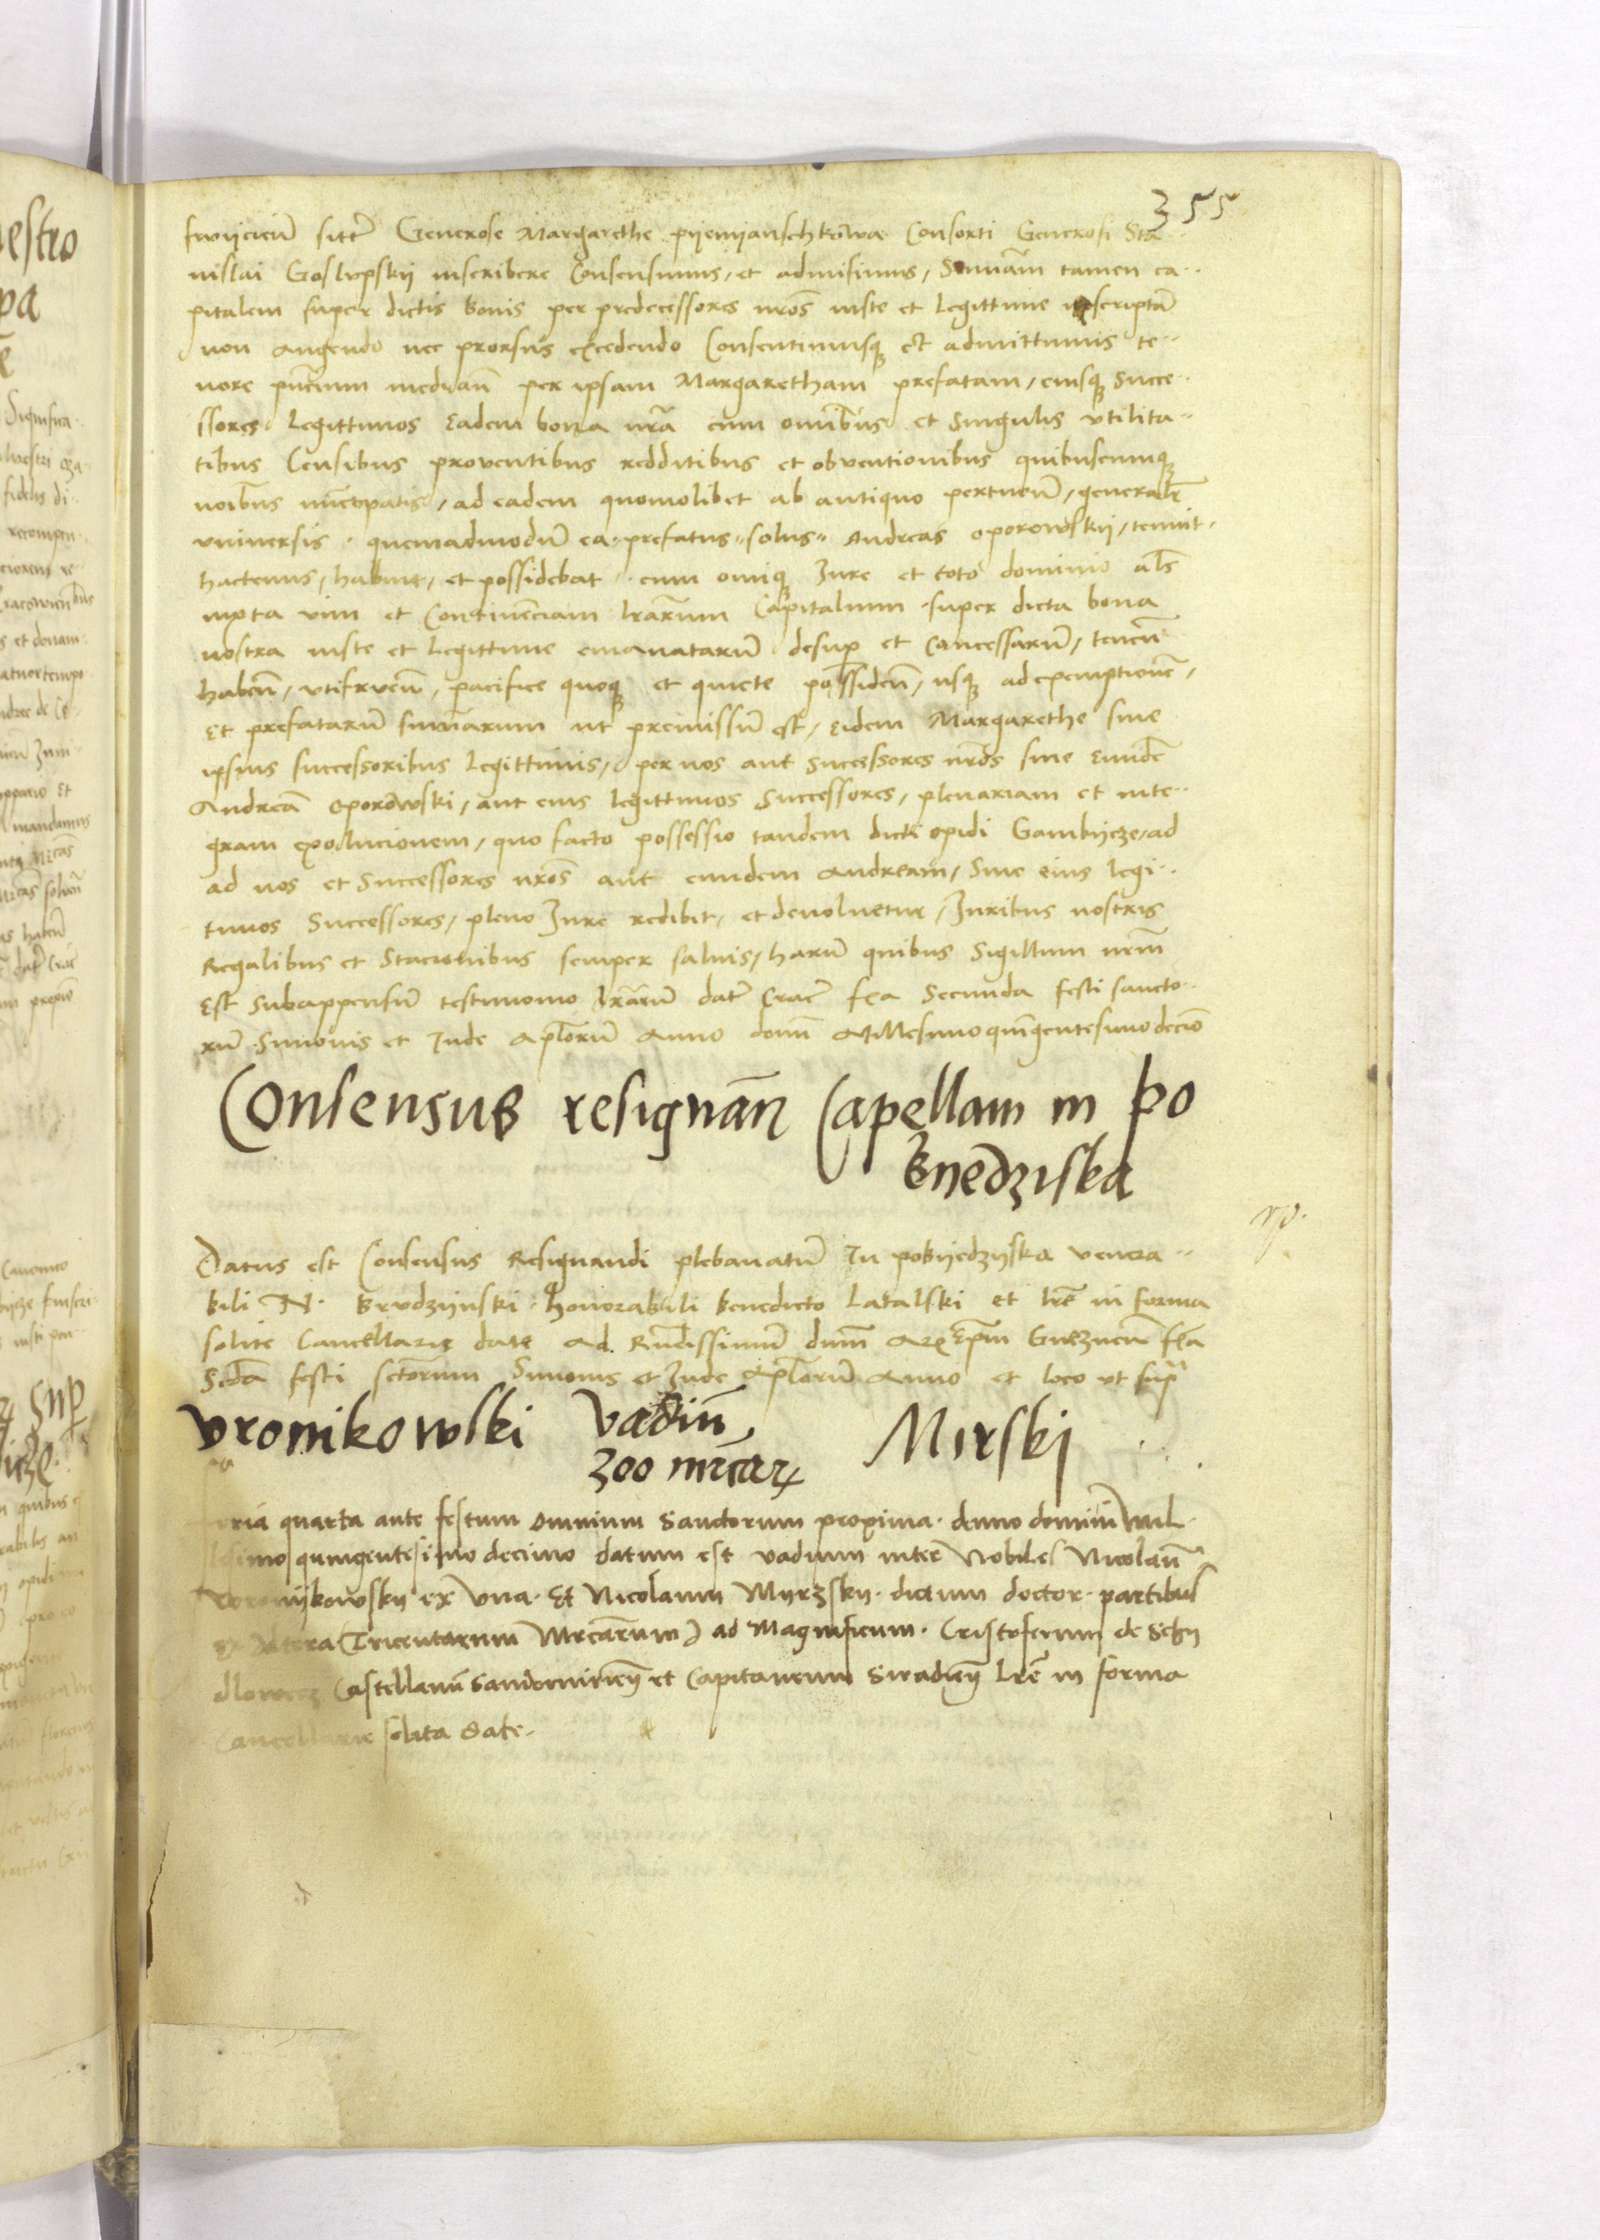 355
sittē Generose Margarethe pyenyanschkowa Consorti Generosi Sta..
nislai Goslupskij inscribere Consensimus, et admisimus, Sum̄am tamen ca..
pitalem super dictis bonis per predecessores nros̄ iuste et legittime inscriptā
non augendo nec prorsus excedendo Consentimusq3 et admittimus te..
nore pn̄cium median̄ per ipsam Margaretham prefatam, eiusq3 Succe..
ssores legittimos eadem bona nrā cum omnibus et Singulis utilita..
tibus Censibus proventibus redditibus et obventionibus quibuscumq3
noībus nūcupatis, ad eadem quomolibet ab antiquo pertinen̄, generalr̄
universis. quemadmodū ea prefatus solus Andreas oporowskij, tenuit,
hactenus, habuit, et possidebat.. cum omiq3 Iure et toto dominio als̄
iuxta vim et Continenciam lrārum Capitalium super dicta bona
nostra iuste et legittime emanatarū desup et Concessarū, tenen̄
haben̄, utifruen̄, pacifice quoq3 et quiete possiden̄, usq3 ad exemptionē,
et prefatarū sum̄arum ut premissū est, eidem Margarethe sive
ipsius successoribus legittimis, per nos aut Sucessores nros̄ sive eundē
Andreā oporowski, aut eius legittimos Successores, plenariam et inte..
gram exolucionem, quo facto possessio tandem dicti opidi Gambijcze, ad
ad nos et Successores nros̄ aut eundem Andream, Sive eius legi..
timos Successores, pleno Iure redibit, et devolvetur, Iuribus nostris
Regalibus et Stacionibus semper salvis, harū quibus Sigillum nr̄m
est Subappensū testimonio lrārū dat̄ Crac̄ fr̄a Secunda festi sancto..
rū Simonis et Iude Apl̄orū Anno domī Millesimo quīgentesimo decīo
Consensus resignān Capellam in po
byedziska
Datus est Consensus Resignandi plebanatū In pobyedzyska venera..
bili N. Brudzynski honorabili benedicto latalski et lrē in forma
solite Cancellarie date Ad Rn̄dissimū dnm̄ Arx ep̄m Gnēznen̄ fr̄a
Scda festi sctōrum Simonis et Iude Apl̄orū Anno et loco ut supra
Vronikowski Vadiū Mirski
300 mrcar
Feria quarta ante festum omnium Sanctorum proxima. Anno domini mil
quingentesimo decimo datum est vadium inter Nobiles Nicolaū
Voronijkowskij ex una. Et Nicolaum Myrzskij. dictum doctor. partibus
ex altera (Tricentarum Mrcarum) ad Magnificum. Cristoferum de Schy
dlowecz Castellanū Sandomirien̄ et Capitaneum Siradien̄ Lrē in forma
Cancellarie solita date.